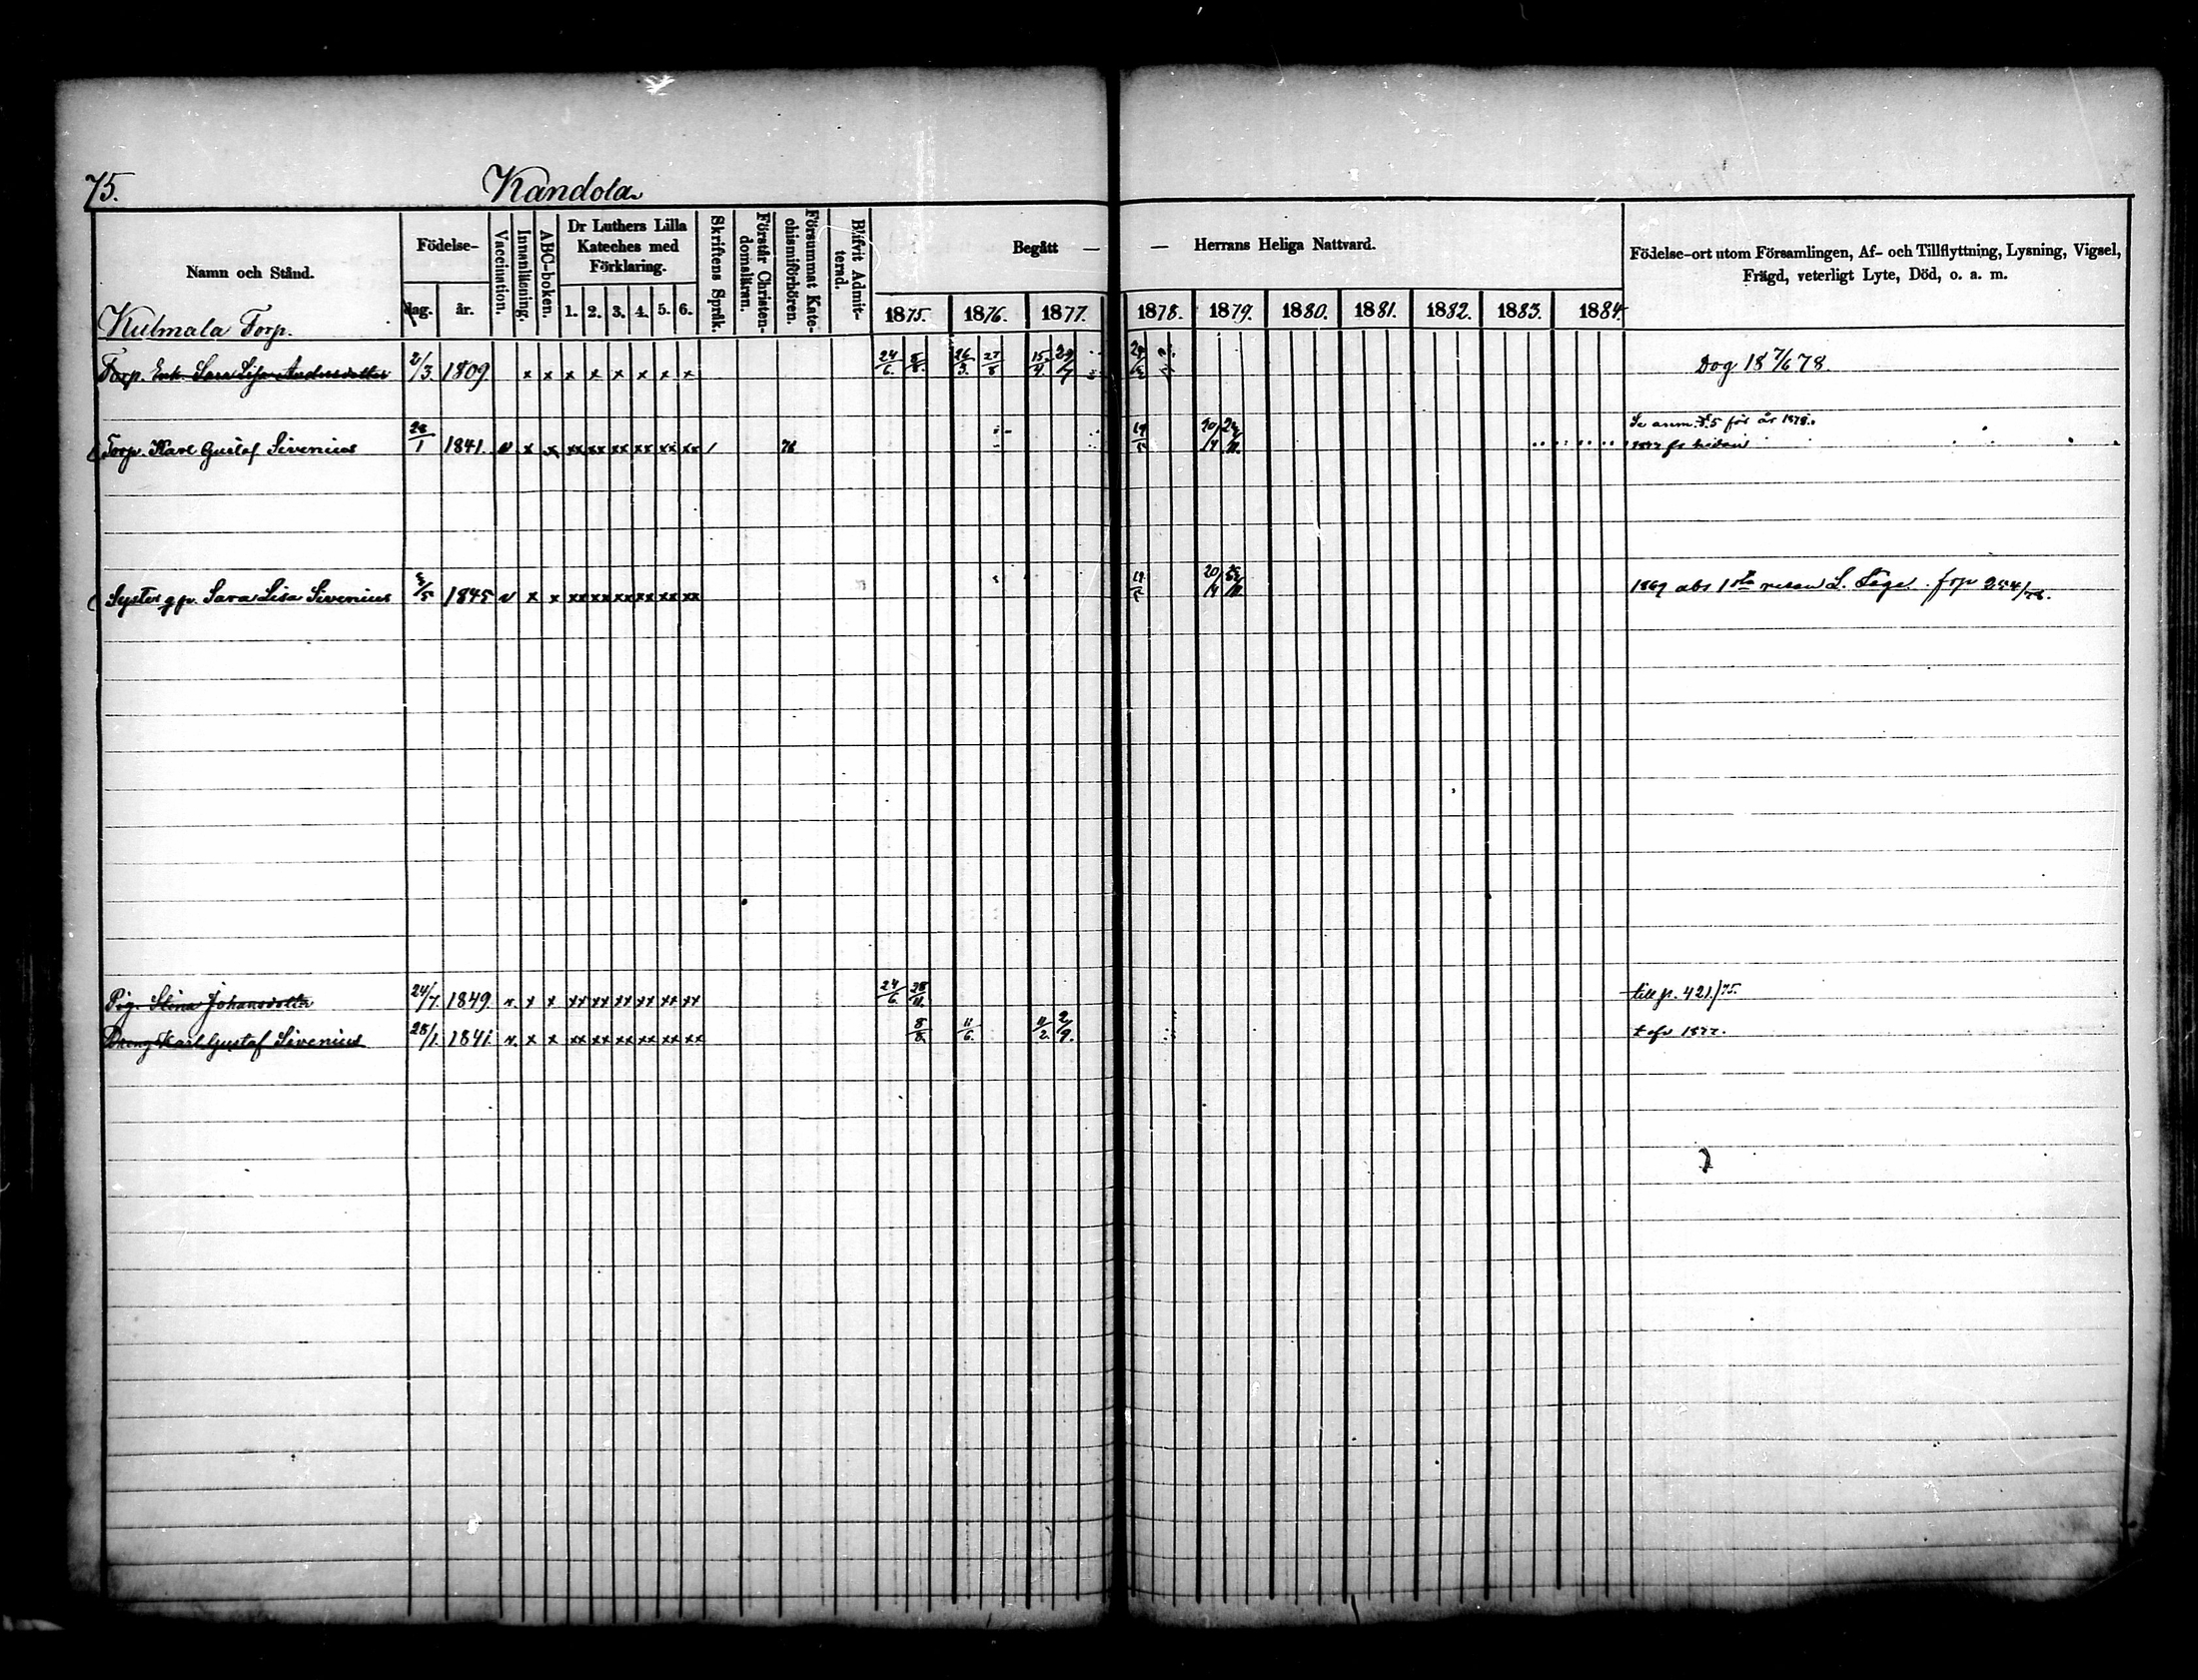 75. Kandola
Namn och Stånd.
Födelse-
dag. år.
Vaccination.
Innanläsning.
ABC-boken.
Dr Luthers Lilla
Kateches med
Förklaring.
1. 2. 3. 4. 5. 6.
Skriftens Språk.
Förstår Christen-
domsläran.
Försummat Kate-
chismiförhören.
Blifvit Admit-
terad.
Begått — — Herrans Heliga Nattvard.
1875. 1876. 1877. 1878. 1879. 1880. 1881. 1882. 1883. 1884.
Födelse-ort utom Församlingen, Af- och Tillflyttning, Lysning, Vigsel,
Frägd, veterligt Lyte, Död, o. a. m.
Kulmala Torp.
Torp. Enk. Sara Lisa Andersdotter 2/3 1809 x x x x x x x x 24/6 26/3 27/8 15/4 Dog 18 7/6 78
Se anm. för år 1878.
Torp. Karl Gustaf Sivenius 28/1 1841. v x x xx xx xx xx xx xx / 76 19/5 20/4
Syster gp. Sara Lisa Sivenius 1845 v x x xx xx xx xx xx xx 19/5 20/4 1869 abs 1sta resan L. Läge. frp 254/78.
Pig. Stina Johansdotter 24/7. 1849 v. x x xx xx xx xx xx xx 24/6. 28/11. till p. 421./75.
Dreng Karl Gustaf Sivenius 28/1. 1841. v. x x xx xx xx xx xx xx 8/8. 11/6. 11/2. 2/9. t ofv 1877.